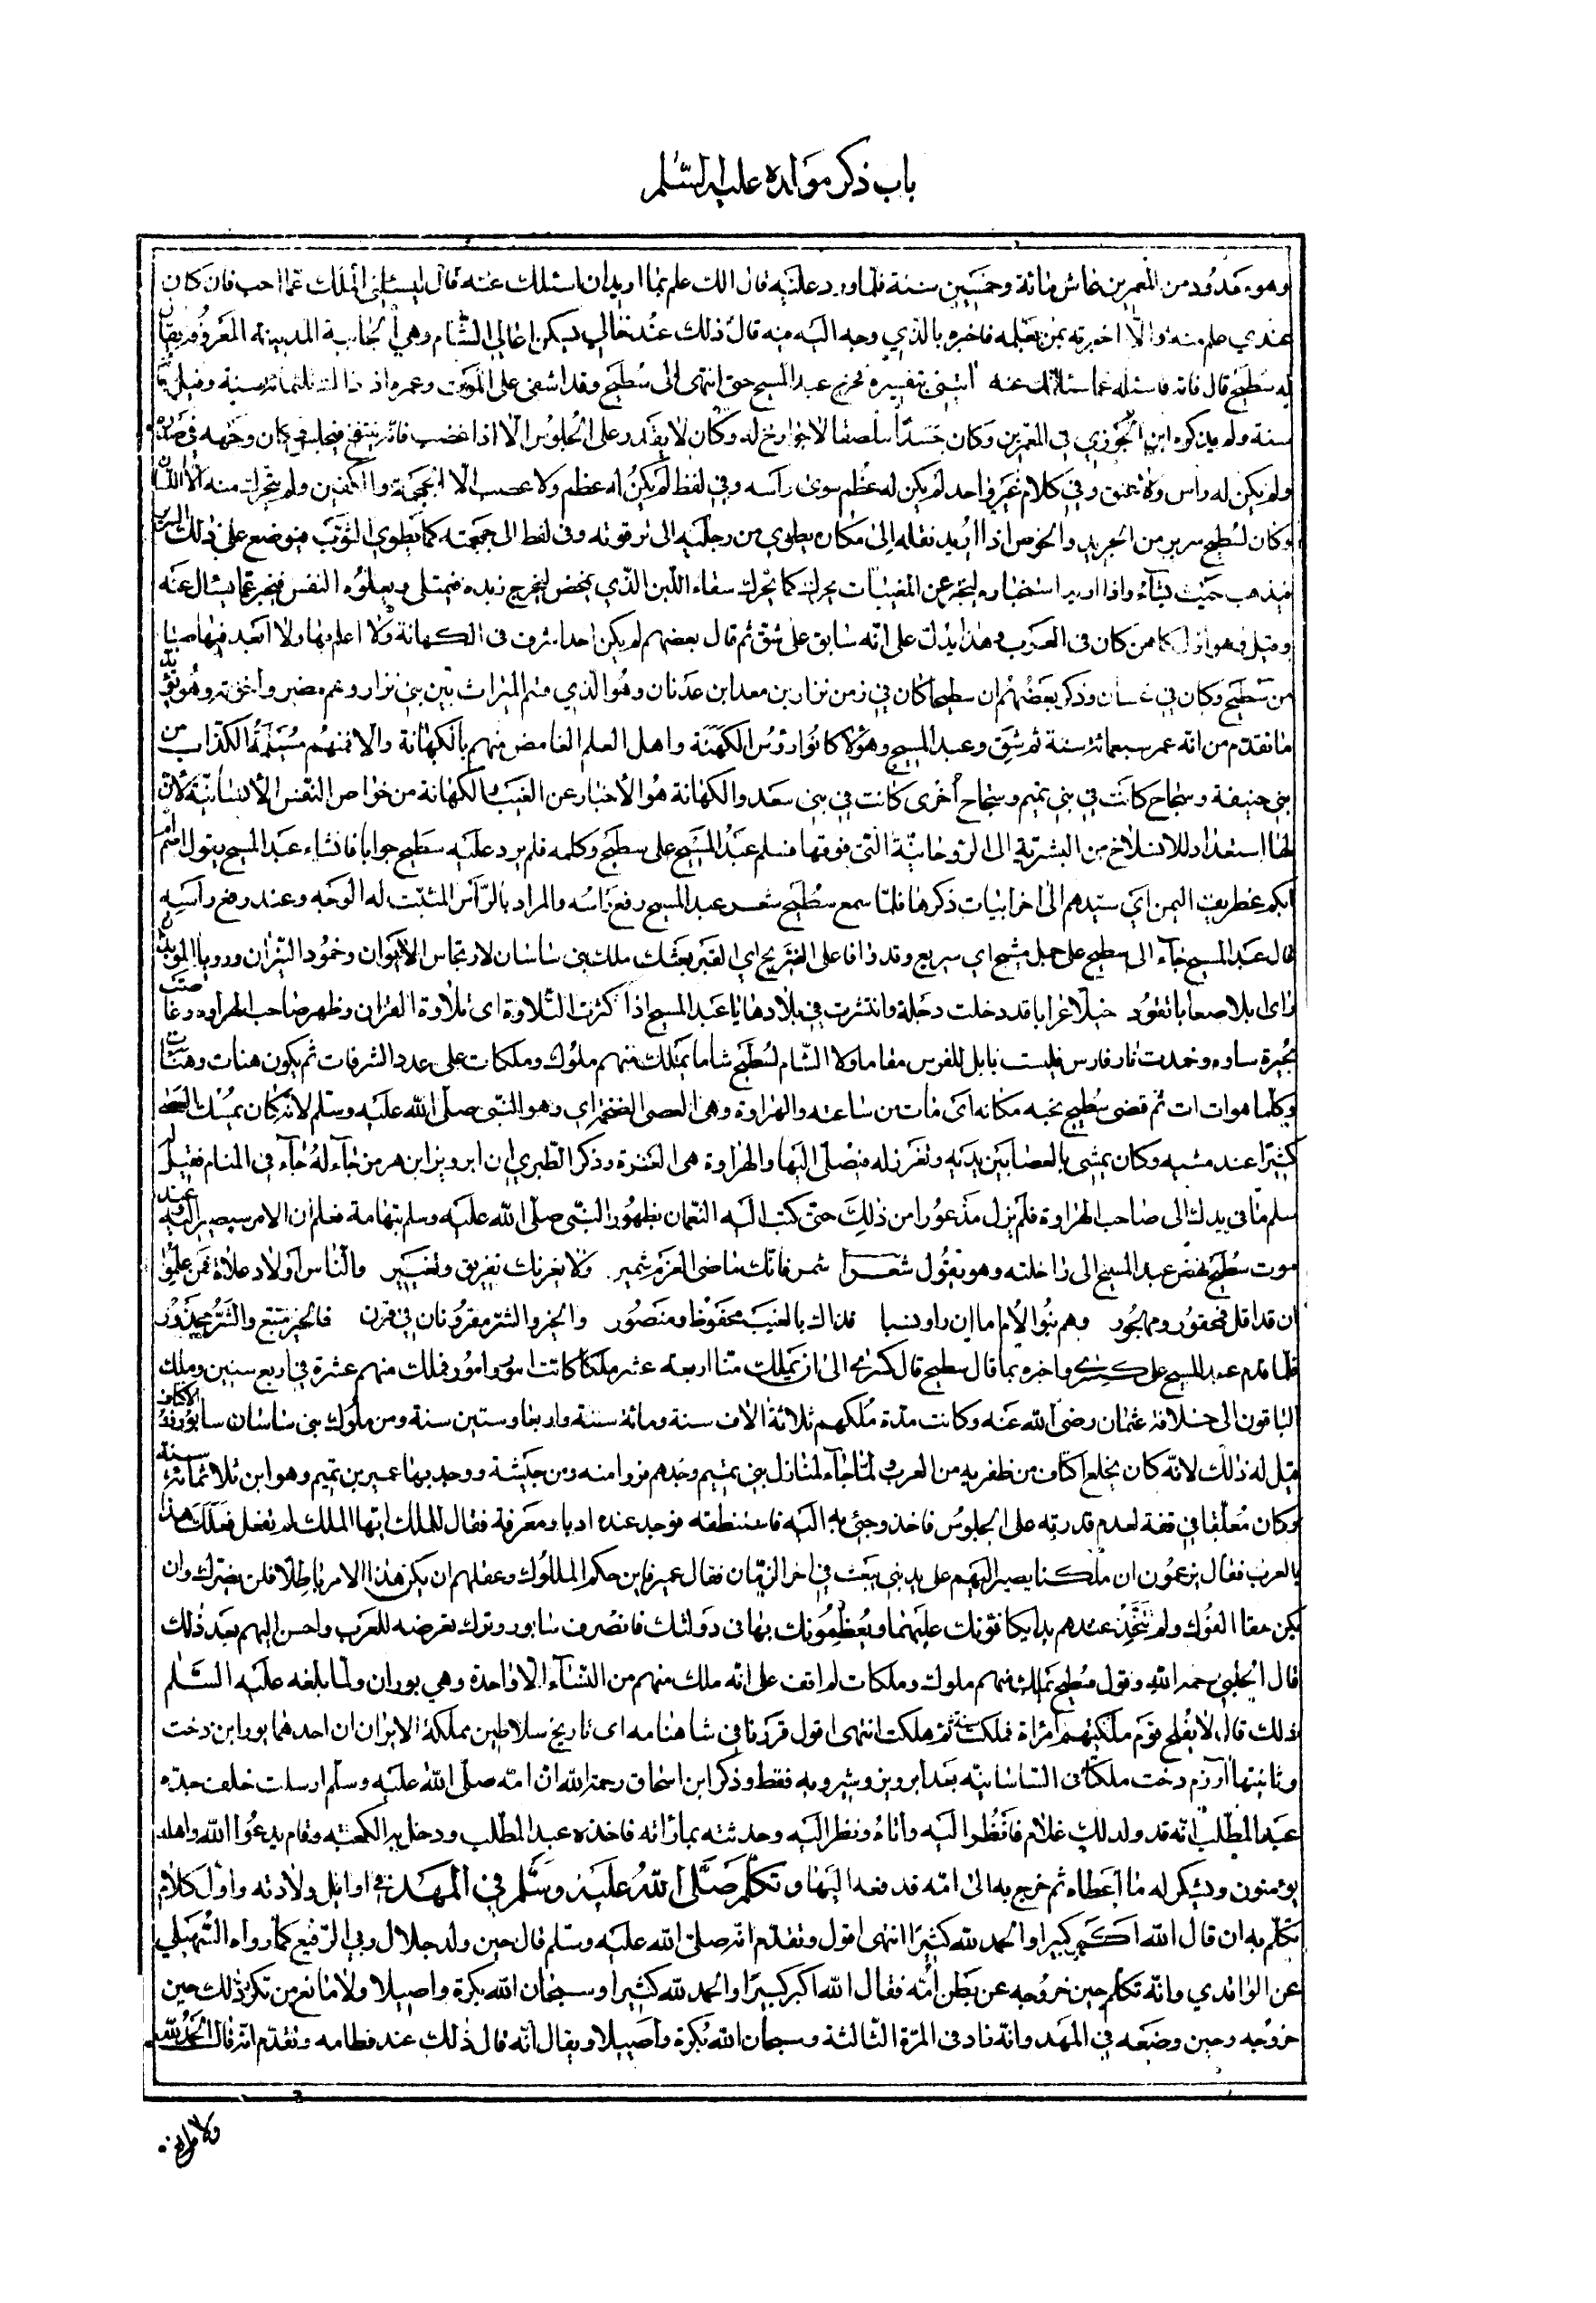 باب ذكر مولده عليه السلم
وهو معدود من المعمرين عاش مائة وخمسين سنة فلما ورد عليه قال الك علم بما اريد ان اسئلك عنه قال ليسئلني الملك عما احب فان كان
عندي علم منه والا اخبرته بمن يعلمه فاخبره بالذي وجه اليه فيه قال ذلك عند خالي يسكن اعالي الشام وهي الجابية المدينة المعروفة يقال
له سطيح قال فاته فاسئله عما سئلتك عنه ائتني بتفسيره فخرج عبد المسيح حتى انتهى الى سطيح وقد اشفى على الموت وعمره اذ ذاك ثلثمائة سنة وقيل
سنة ولم يذكره ابن الجوزي في المعمرين وكان جسدا ملقى لا جوارح له وكان لا يقدر على الجلوس الا اذا غضب فانه ينتفخ فيجلس وكان وجهه في صدره
ولم يكن له راس ولا عنق وفي كلام غير واحد لم يكن له عظم سوى راسه وفي لفظ لم يكن له عظم ولا عصب الا الجمجمة والكفين ولم يتحرك منه الا اللسان
وكان لسطيح سرير من الجريد والخوص اذا اريد نقله الى مكان يطوي من رجليه الى ترقوته وفى لفظ الى جمجمته كما يطوي الثوب فيوضع على ذلك السرير
فيذهب حيث يشاء واذا اريد استخباره ليخبر عن المغيبات يحرك كما يحرك سقاء اللبن الذي يمخض ليخرج زبده فيمتلى ويعلوه النفس فيخبر عما يسئال عنه
وقيل هو اول كاهن كان في العرب وهذا يدل على انه سابق على شق ثم قال بعضهم لم يكن احد اشرف في الكهانة ولا اعلم بها ولا ابعد فيها صيتا
من سطيح وكان في غسان وذكر بعضهم ان سطيحا كان في زمن نزار بن معد ابن عدنان وهو الذي قسم الميراث بين بني نزار وهم مضر واخوته وهو يؤيد
ما تقدم من انه عمر سبعمائة سنة ثم شق وعبد المسيح وهؤلا كانوا رؤس الكهنة واهل العلم الغامض منهم بالكهانة والا فمنهم مسيلمة الكذاب من
بني حنيفة وسجاح كانت في بني تميم وسجاح أخرى كانت في بني سعد والكهانة هو الأخبار عن الغيب والكهانة من خواص النفس الأنسانية لأن
لها استعداد للانسلاخ من البشرية الى الروحانية التي فوقها فسلم عبد المسيح على سطيح وكلمه فلم يرد عليه سطيح جوابا فانشاء عبد المسيح يقول اصم
ابكم غطريف اليمن اي سيدهم الى اخر ابيات ذكرها فلما سمع سطيح شعر عبد المسيح رفع راسه والمراد بالرأس المثبت له الوجه وعند رفع رأسه
قال عبد المسيح جآء الى سطيح على جمل مشيح اي سريع وقد وافا على الضريح اي القبر بعثك ملك بني ساسان لارتجاس الايوان وخمود النيران ورويا الموبذان
راى ابلا صعابا تقود خيلا عرابا قد دخلت دجلة وانتثرت في بلادها يا عبد المسيح اذا كثرت التلاوة اى تلاوة القران وظهر صاحب الهراوه وغاضت
بحيرة ساوه وخمدت نار فارس فليست بابل للفرس مقاما ولا الشام لسطيح شاما يملك منهم ملوك وملكات على عدد الشرفات ثم يكون هنات وهنات
وكلما هو ات ات ثم قضى سطيح نحبه مكانه اى مات من ساعته والهراوة وهى العصى الضخمة اي وهو النبى صلى الله عليه وسلم لانه كان يمسك العصا
كثيرا عند مشيه وكان يمشي بالعصا بين يديه وتغرز له فيصلى اليها والهراوة هى العنزة وذكر الطبري ان ابرويز ابن هرمز جآء له جآء في المنام فقيل له
سلم ما في يدك الى صاحب الهراوة فلم يزل مذعورا من ذلك حتى كتب اليه النعمان بظهور النبى صلى الله عليه وسلم بتهامة فعلم ان الامر سيصير اليه وعند
موت سطيح نهض عبد المسيح الى راحلته وهو يقول شعرا شمر فانك ماضى العزم شمير ولا يغرنك تفريق وتغيير والناس اولاد علاة فمن علموا
ان قد اقل فمحقور ومهجور وهم بنوا الأم اما ان راو نشبا فذاك بالغيب محفوظ ومنصور والخير والشر مقرونان في قرن فالخير متبع والشر محذور
فلما قدم عبد المسيح على كسرى واخبره بما قال سطيح قال كسرى الى ان يملك منا اربعة عشر ملكا كانت امور وامور فملك منهم عشرة في اربع سنين وملك
الباقون الى خلافة عثمان رضى الله عنه وكانت مدة ملكهم ثلاثة الاف سنة ومائة سنة واربعا وستين سنة ومن ملوك بني ساسان سابور ذو الاكتاف
قيل له ذالك لانه كان يخلع اكتاف من ظفر به من العرب ولما جآء لمنازل بني تميم وجدهم فروا منه ومن جيشه ووجد بها عمير بن تميم وهو ابن ثلاثمائة سنة
وكان معلقا في قفة لعدم قدرته على الجلوس فاخذ وجئ به اليه فاستنطقه فوجد عنده ادبا ومعرفة فقال للملك ايها الملك لم تفعل فعلك هذا
بالعرب فقال يزعمون ان ملكنا يصير اليهم على يد نبي يبعث في اخر الزمان فقال عمير فاين حكم الملوك وعقلهم ان يكن هذا الامر باطلا فلن يضرك وان
يكن حقا الفوك ولم تتخذ عندهم يدا يكافئونك عليها ويعظمونك بها في دولتك فانصرف سابور وترك تعرضه للعرب واحسن اليهم بعد ذلك
قال الحلبي رحمه الله وقول سطيح يملك منهم ملوك وملكات لم اقف على انه ملك منهم من النسآء الا واحدة وهي بوران ولما بلغه عليه السلم
ذلك قال لا يفلح قوم ملكتهم امراة فملكت سنة ثم هلكت انتهى اقول قردنا في شاهنامه اى تاريخ سلاطين مملكة الايران ان احدهما بوران دخت
وثانيتها آزرم دخت ملكتا في الساسانيه بعد ابرويز وشرويه فقط وذكر ابن اسحاق رحمه الله ان امه صلى الله عليه وسلم ارسلت خلف جده
عبد المطلب انه قد ولد لك غلام فانظر اليه واتاه ونظر اليه وحدثته بما راته فاخذه عبد المطلب ودخل به الكعبة وقام يدعوا الله واهله
يؤمنون ويشكر له ما أعطاه ثم خرج به الى امه فدفعه اليها وتكلم صلى الله عليه وسلم في المهد في اوايل ولادته واول كلام
تكلم به ان قال الله اكبر كبيرا والحمد لله كثيرا انتهى اقول وتقدم انه صلى الله عليه وسلم قال حين ولد جلال ربي الرفيع كما رواه السهيلي
عن الواقدي وانه تكلم حين خروجه عن بطن أمه فقال الله اكبر كبيرا والحمد لله كثيرا وسبحان الله بكرة واصيلا ولا مانع من تكرر ذلك حين
خروجه وحين وضعه في المهد وانه ناد فى المرة الثالثة وسبحان الله بكرة وأصيلا ويقال انه قال ذلك عند فطامه وتقدم انه قال الحمد لله
ولا مانع